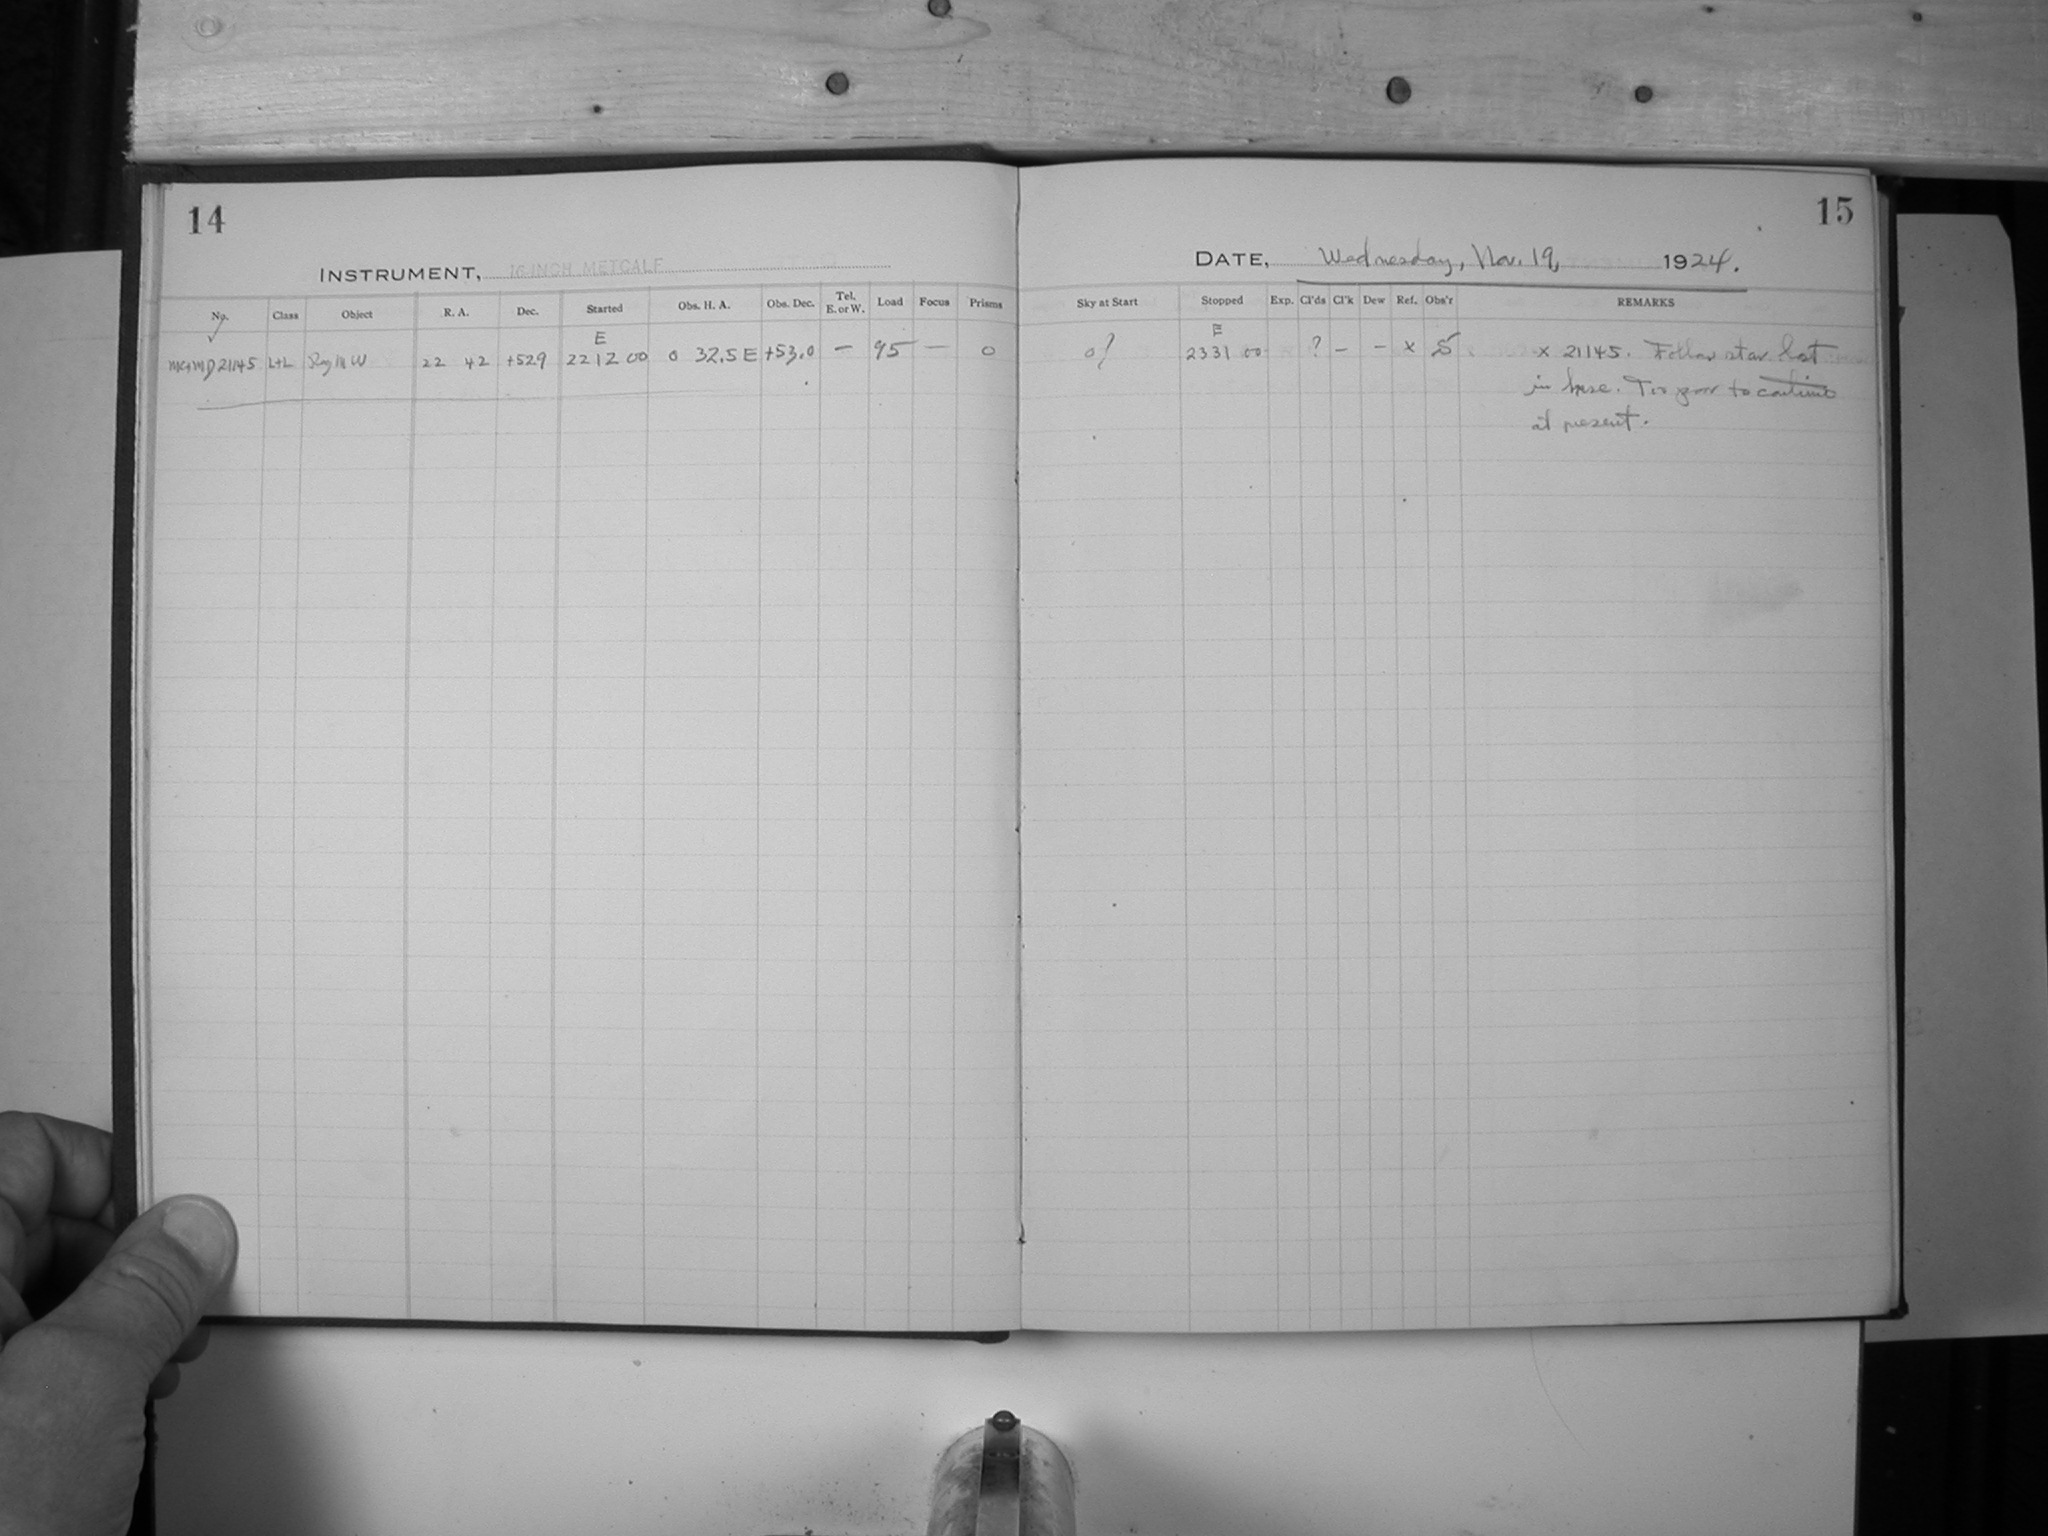 14
INSTRUMENT, 16-INCH METCALF
No. Class Object R. A. Dec. Started Obs. H. A. Obs. Dec. Tel. E. or W. Load Focus Prisms
E
21145 L+L 22 42 +529 22 12 00 0 32.5 E +53.0 — 95 — 0
15
DATE, Wednesday, Nov. 19, 1924.
Sky at Start Stopped Exp. Cl'ds Cl'k Dew Ref. Obs'r REMARKS
E
0? 2331 00 ? — — x x 21145. Follow star lost
in haze. Too poor to continue
at present.